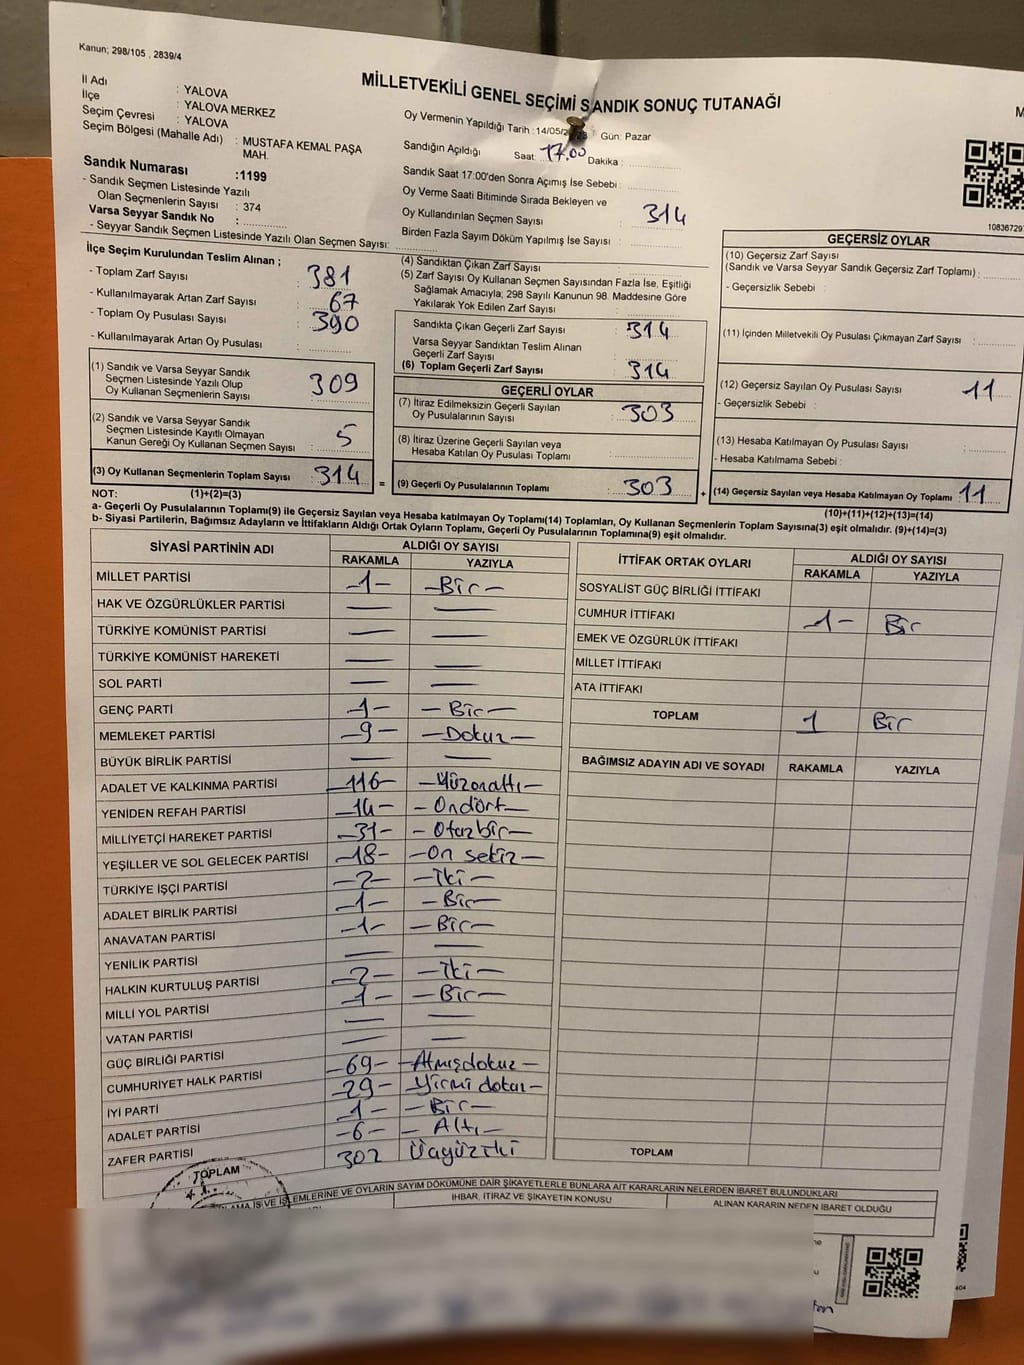 Kanun; 298/105 , 2839/4
MİLLETVEKİLİ GENEL SEÇİMİ SANDIK SONUÇ TUTANAĞI
İl Adı : YALOVA
İlçe : YALOVA MERKEZ
Seçim Çevresi : YALOVA
Seçim Bölgesi (Mahalle Adı) : MUSTAFA KEMAL PAŞA
MAH.
Sandık Numarası :1199
- Sandık Seçmen Listesinde Yazılı
Olan Seçmenlerin Sayısı : 374
Varsa Seyyar Sandık No :
- Seyyar Sandık Seçmen Listesinde Yazılı Olan Seçmen Sayısı:
Oy Vermenin Yapıldığı Tarih : 14/05/ Gün: Pazar
Sandığın Açıldığı Saat: 17.00 Dakika :
Sandık Saat 17:00'den Sonra Açımış İse Sebebi :
Oy Verme Saati Bitiminde Sırada Bekleyen ve
Oy Kullandırılan Seçmen Sayısı : 314
Birden Fazla Sayım Döküm Yapılmış İse Sayısı :
10836729
İlçe Seçim Kurulundan Teslim Alınan ;
- Toplam Zarf Sayısı : 381
- Kullanılmayarak Artan Zarf Sayısı : 67
- Toplam Oy Pusulası Sayısı : 390
- Kullanılmayarak Artan Oy Pusulası :
(1) Sandık ve Varsa Seyyar Sandık
Seçmen Listesinde Yazılı Olup
Oy Kullanan Seçmenlerin Sayısı : 309
(2) Sandık ve Varsa Seyyar Sandık
Seçmen Listesinde Kayıtlı Olmayan
Kanun Gereği Oy Kullanan Seçmen Sayısı : 5
(3) Oy Kullanan Seçmenlerin Toplam Sayısı : 314 =
(4) Sandıktan Çıkan Zarf Sayısı :
(5) Zarf Sayısı Oy Kullanan Seçmen Sayısından Fazla İse, Eşitliği
Sağlamak Amacıyla; 298 Sayılı Kanunun 98. Maddesine Göre
Yakılarak Yok Edilen Zarf Sayısı :
Sandıkta Çıkan Geçerli Zarf Sayısı : 314
Varsa Seyyar Sandıktan Teslim Alınan
Geçerli Zarf Sayısı :
(6) Toplam Geçerli Zarf Sayısı : 314
GEÇERLİ OYLAR
(7) İtiraz Edilmeksizin Geçerli Sayılan
Oy Pusulalarının Sayısı : 303
(8) İtiraz Üzerine Geçerli Sayılan veya
Hesaba Katılan Oy Pusulası Toplamı :
(9) Geçerli Oy Pusulalarının Toplamı : 303 +
GEÇERSİZ OYLAR
(10) Geçersiz Zarf Sayısı
(Sandık ve Varsa Seyyar Sandık Geçersiz Zarf Toplamı) :
- Geçersizlik Sebebi :
(11) İçinden Milletvekili Oy Pusulası Çıkmayan Zarf Sayısı :
(12) Geçersiz Sayılan Oy Pusulası Sayısı : 11
- Geçersizlik Sebebi :
(13) Hesaba Katılmayan Oy Pusulası Sayısı :
- Hesaba Katılmama Sebebi :
(14) Geçersiz Sayılan veya Hesaba Katılmayan Oy Toplamı : 11
NOT: (1)+(2)=(3) (10)+(11)+(12)+(13)=(14)
a- Geçerli Oy Pusulasının Toplamı(9) ile Geçersiz Sayılan veya Hesaba katılmayan Oy Toplamı(14) Toplamları, Oy Kullanan Seçmenlerin Toplam Sayısına(3) eşit olmalıdır. (9)+(14)=(3)
b- Siyasi Partilerin, Bağımsız Adayların ve İttifakların Aldığı Ortak Oyların Toplamı, Geçerli Oy Pusulalarının Toplamına(9) eşit olmalıdır.
SİYASİ PARTİNİN ADI ALDIĞI OY SAYISI
RAKAMLA YAZIYLA
MİLLET PARTİSİ -1- -Bir-
HAK VE ÖZGÜRLÜKLER PARTİSİ — —
TÜRKİYE KOMÜNİST PARTİSİ — —
TÜRKİYE KOMÜNİST HAREKETİ — —
SOL PARTİ — —
GENÇ PARTİ -1- -Bir-
MEMLEKET PARTİSİ -9- -Dokuz-
BÜYÜK BİRLİK PARTİSİ — —
ADALET VE KALKINMA PARTİSİ -116- -Yüzonaltı-
YENİDEN REFAH PARTİSİ -14- -Ondört-
MİLLİYETÇİ HAREKET PARTİSİ -31- -Otuzbir-
YEŞİLLER VE SOL GELECEK PARTİSİ -18- -On sekiz-
TÜRKİYE İŞÇİ PARTİSİ -2- -İki-
ADALET BİRLİK PARTİSİ -1- -Bir-
ANAVATAN PARTİSİ -1- -Bir-
YENİLİK PARTİSİ — —
HALKIN KURTULUŞ PARTİSİ -2- -İki-
MİLLİ YOL PARTİSİ -1- -Bir-
VATAN PARTİSİ — —
GÜÇ BİRLİĞİ PARTİSİ — —
CUMHURİYET HALK PARTİSİ -69- -Atmışdokuz-
İYİ PARTİ -29- -Yirmi dokuz-
ADALET PARTİSİ -1- -Bir-
ZAFER PARTİSİ -6- -Altı-
TOPLAM 302 Üçyüziki
İTTİFAK ORTAK OYLARI ALDIĞI OY SAYISI
RAKAMLA YAZIYLA
SOSYALİST GÜÇ BİRLİĞİ İTTİFAKI
CUMHUR İTTİFAKI -1- Bir
EMEK VE ÖZGÜRLÜK İTTİFAKI
MİLLET İTTİFAKI
ATA İTTİFAKI
TOPLAM 1 Bir
BAĞIMSIZ ADAYIN ADI VE SOYADI RAKAMLA YAZIYLA
TOPLAM
İŞ VE İŞLEMLERİNE VE OYLARIN SAYIM DÖKÜMÜNE DAİR ŞİKAYETLERLE BUNLARA AİT KARARLARIN NELERDEN İBARET BULUNDUKLARI
İHBAR, İTİRAZ VE ŞİKAYETİN KONUSU
ALINAN KARARIN NEDEN İBARET OLDUĞU